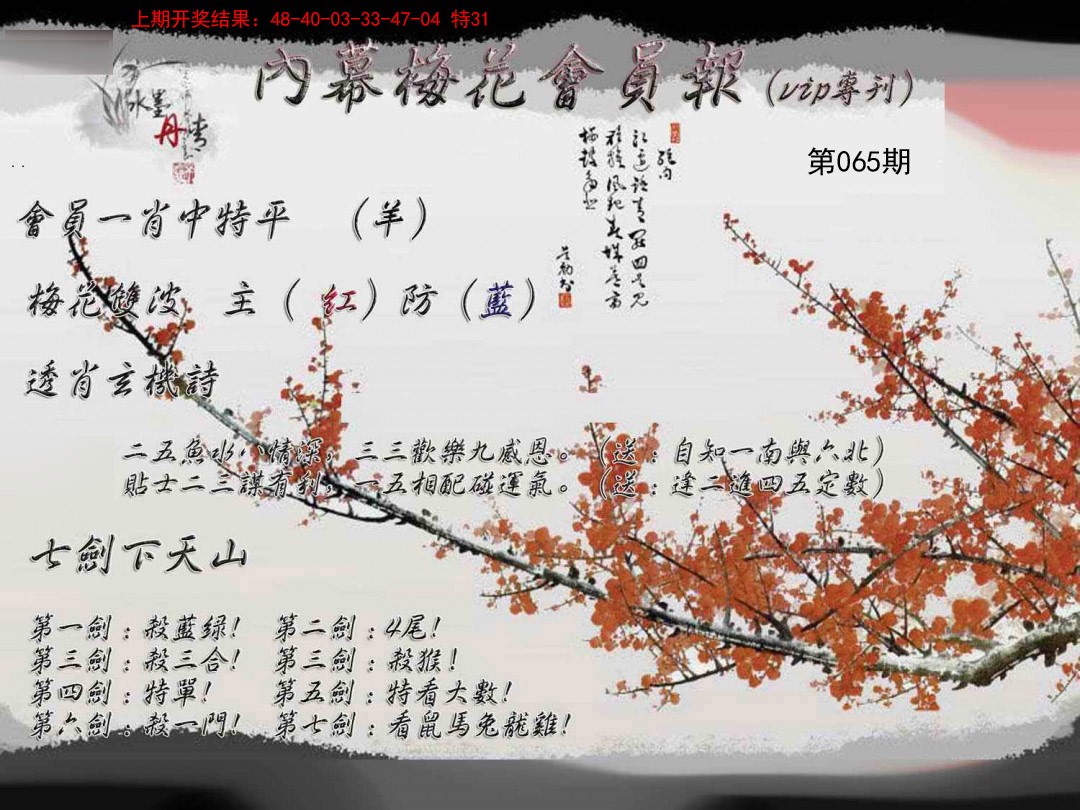 上期开奖结果：48-40-03-33-47-04 特31
內幕梅花會員報（vip專刊）
水墨
丹青
第065期
會員一肖中特平 （羊）
梅花雙波 主（紅）防（藍）
透肖玄機詩
二五魚水八情深，三三歡樂九感恩。（送：自知一南與六北）
貼士二三謀有利，一五相配碰運氣。（送：逢二進四五定數）
七劍下天山
第一劍：殺藍绿！ 第二劍：4尾！
第三劍：殺三合！ 第三劍：殺猴！
第四劍：特單！ 第五劍：特看大數！
第六劍：殺一門！ 第七劍：看鼠馬兔龍雞！